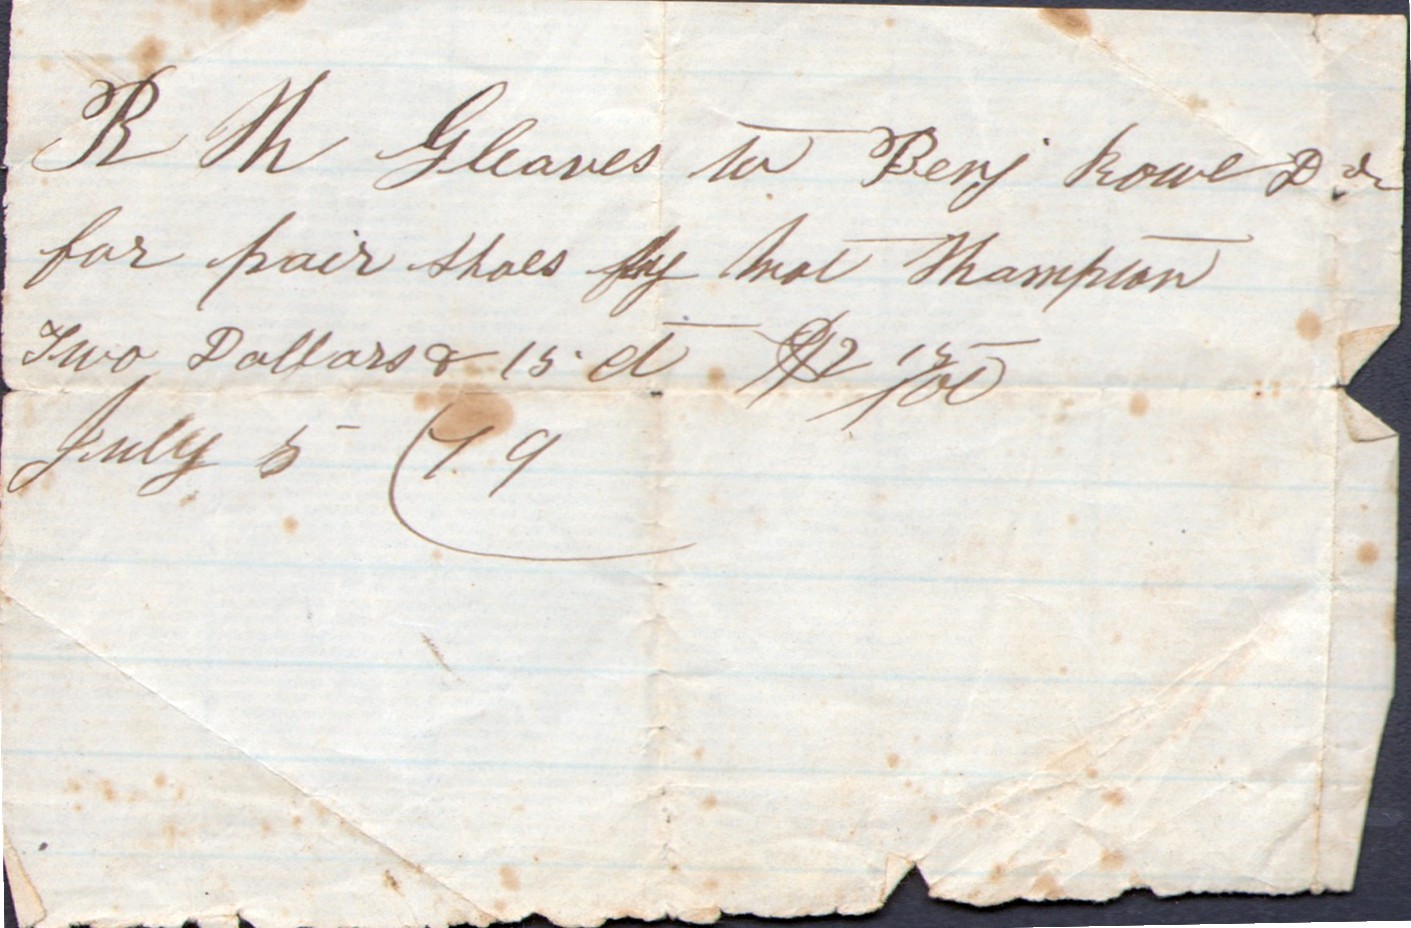 R M Gleaves to Benj Rowe Dr
for pair shoes by Thompton
Two Dollars & 15 ct $2 15/00
July 5 79